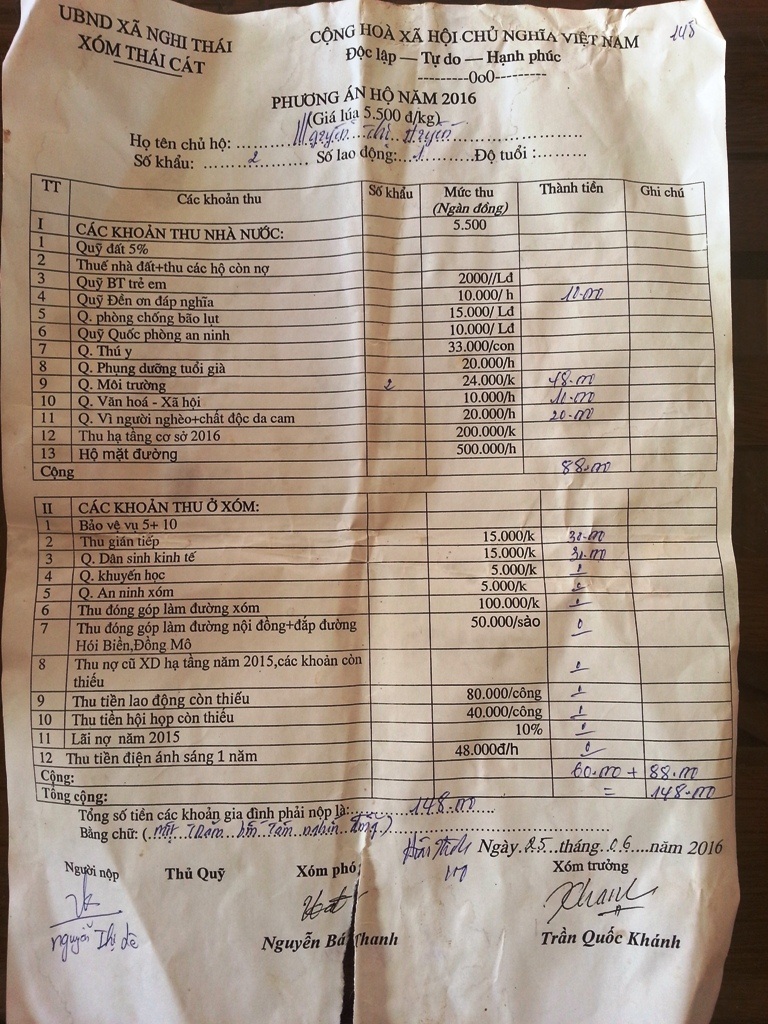 UBND XÃ NGHI THÁI
XÓM THÁI CÁT
CỘNG HOÀ XÃ HỘI CHỦ NGHĨA VIỆT NAM
148
Độc lập — Tự do — Hạnh phúc
---------0o0---------
PHƯƠNG ÁN HỘ NĂM 2016
(Giá lúa 5.500 đ/kg)
Họ tên chủ hộ: Nguyễn Thị
Số khẩu: 2 Số lao động: 1 Độ tuổi :
TT Các khoản thu Số khẩu Mức thu (Ngàn đồng) Thành tiền Ghi chú
I CÁC KHOẢN THU NHÀ NƯỚC: 5.500
1 Quỹ đất 5%
2 Thuế nhà đất+thu các hộ còn nợ
3 Quỹ BT trẻ em 2000//Lđ
4 Quỹ Đền ơn đáp nghĩa 10.000/ h 10.000
5 Q. phòng chống bão lụt 15.000/ Lđ
6 Quỹ Quốc phòng an ninh 10.000/ Lđ
7 Q. Thú y 33.000/con
8 Q. Phụng dưỡng tuổi già 20.000/h
9 Q. Môi trường 2 24.000/k 48.000
10 Q. Văn hoá - Xã hội 10.000/h 10.000
11 Q. Vì người nghèo+chất độc da cam 20.000/h 20.000
12 Thu hạ tầng cơ sở 2016 200.000/k
13 Hộ mặt đường 500.000/h
Cộng 88.000
II CÁC KHOẢN THU Ở XÓM:
1 Bảo vệ vụ 5+ 10
2 Thu gián tiếp 15.000/k 30.000
3 Q. Dân sinh kinh tế 15.000/k 30.000
4 Q. khuyến học 5.000/k 0
5 Q. An ninh xóm 5.000/k 0
6 Thu đóng góp làm đường xóm 100.000/k 0
7 Thu đóng góp làm đường nội đồng+đắp đường 50.000/sào 0
Hói Biền,Đồng Mô
8 Thu nợ cũ XD hạ tầng năm 2015,các khoản còn 0
thiếu
9 Thu tiền lao động còn thiếu 80.000/công 0
10 Thu tiền hội họp còn thiếu 40.000/công 0
11 Lãi nợ năm 2015 10% 0
12 Thu tiền điện ánh sáng 1 năm 48.000đ/h 0
Cộng: 60.000 + 88.000
Tổng cộng: = 148.000
Tổng số tiền các khoản gia đình phải nộp là: 148.000
Bằng chữ: (Một Trăm bốn Tám nghìn đồng)
Ngày 25 tháng 06 năm 2016
Người nộp Thủ Quỹ Xóm phó Xóm trưởng
nguyễn Thị
Nguyễn Bá Thanh Trần Quốc Khánh